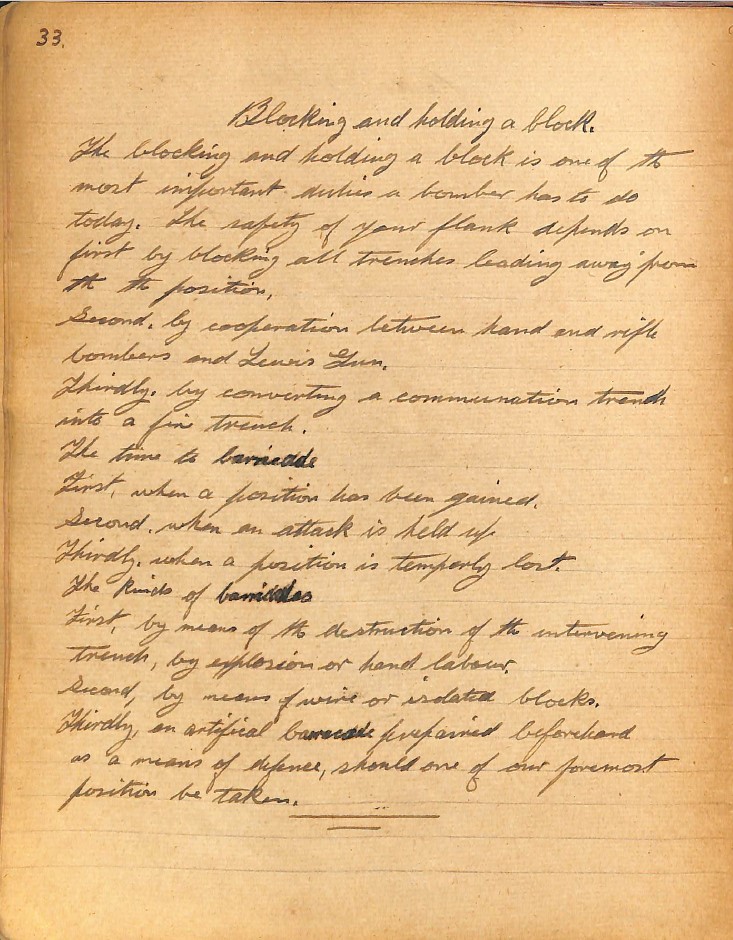 33.
Blocking and holding a block.
The blocking and holding a block is one of th
most important duties a bomber has to do
today. The safety of your flank depends on
first by blocking all trenches leading away from
th th position,
Second, by cooperation between hand and rifle
bombers and Lewis Gun.
Thirdly, by converting a communation trench
into a fire trench.
The time to barricade
First, when a position has been gained.
Second, when an attack is held up
Thirdly, when a position is temperly lost.
The kinds of barricades
First, by means of th destruction of th intervening
trench, by explosion or hand labour.
Second, by means of wire or isolated blocks.
Thirdly, an artifical barricade prepaired beforehand
as a means of defence, should one of our foremost
position be taken.